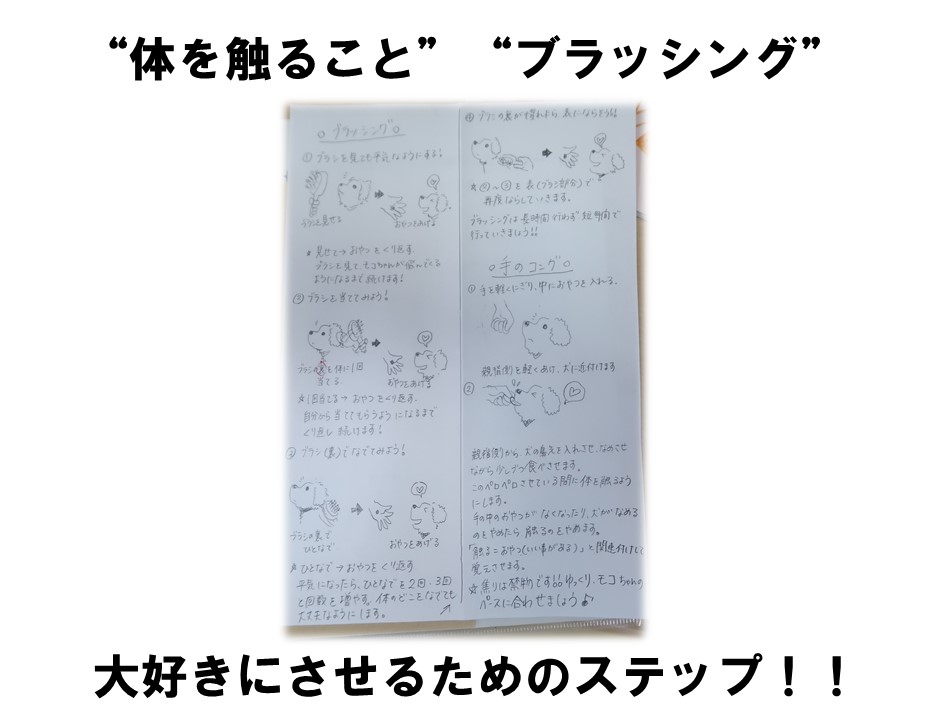 “体を触ること” “ブラッシング”
○ブラッシング○
①ブラシを見ても平気なようにする!
ブラシを見せる
おやつをあげる
見せて→おやつをくり返す
ブラシを見てモコちゃんが喜んでくる
ようになるまで続けます!
②ブラシを当ててみよう!
ブラシの裏を体に1回
当てる
おやつをあげる
☆1回当てる→おやつをくり返す
自分から当ててもらうようになるまで
くり返し続けます!
③ブラシ(裏)でなでてみよう!
ブラシの裏で
ひとなで
おやつをあげる
ひとなで→おやつをくり返す
平気になったら、ひとなでを2回・3回
と回数を増やす。体のどこをなでても
大丈夫なようにします。
④ブラシの裏が慣れたら表にならそう!!
☆②〜③を表(ブラシ部分)で
再度ならしていきます。
ブラッシングは長時間行わず短時間で
行っていきましょう!!
○手のコング○
①手を軽くにぎり、中におやつを入れる。
親指側を軽くあけ、犬に近付けます
②
親指側から、犬の鼻先を入れさせ、なめさせ
ながら少しづつ食べさせます。
このペロペロさせている間に体を触るよう
にします。
手の中のおやつがなくなったり、犬がなめる
のをやめたら触るのをやめます。
「触る=おやつ(いい事がある)」と関連付けして
覚えさせます。
☆焦りは禁物です!!ゆっくり、モコちゃんの
ペースに合わせましょう♪
大好きにさせるためのステップ!!